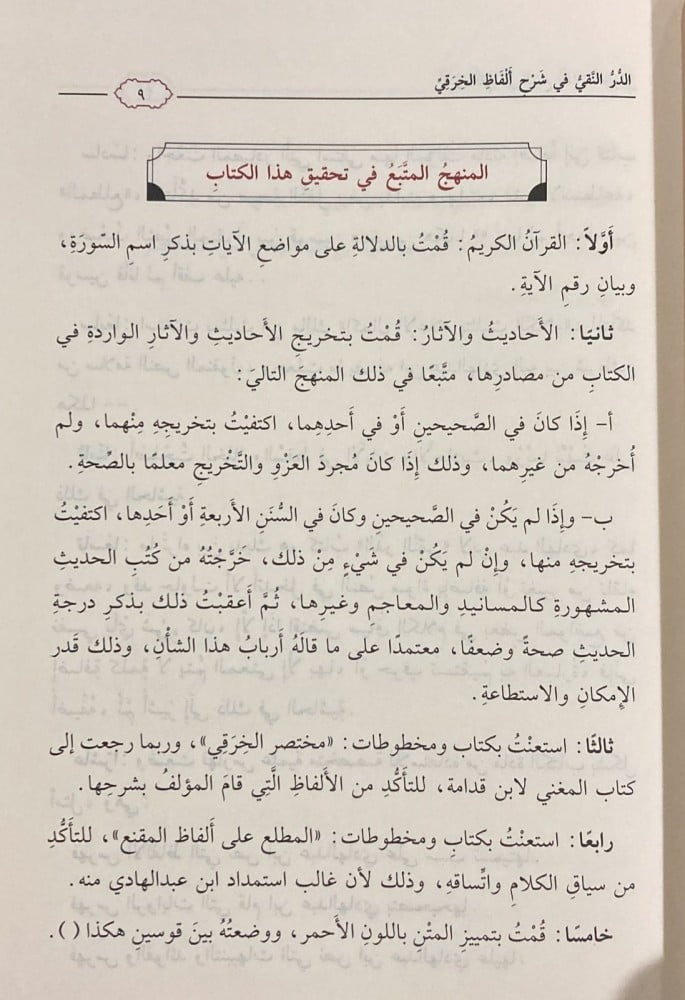 الدُّرُّ النَّقيُّ في شَرْحِ أَلْفَاظِ الخِرَقِيّ
٩
المنهجُ المتَّبَعُ في تحقيقِ هذا الكتابِ
أَوَّلاً: القرآنُ الكريمُ: قُمْتُ بالدلالةِ على مواضعِ الآياتِ بذكرِ اسمِ السّورَةِ،
وبيانِ رقمِ الآيةِ.
ثانيًا: الأَحاديثُ والآثارُ: قُمْتُ بتخريجِ الأَحاديثِ والآثارِ الواردةِ في
الكتابِ من مصادرِها، متَّبعًا في ذلك المنهجَ التاليَ:
أ- إِذَا كانَ في الصَّحيحينِ أَوْ في أَحدِهِما، اكتفيْتُ بتخريجِهِ مِنْهما، ولم
أُخرجْهُ من غيرِهما، وذلك إِذَا كانَ مُجردَ العَزْوِ والتَّخْريجِ معلمًا بالصِّحةِ.
ب- وإِذَا لم يَكُنْ في الصَّحيحينِ وكانَ في السُّنَنِ الأَربعةِ أَوْ أَحَدِها، اكتفيْتُ
بتخريجهِ منها، وإِنْ لم يَكُنْ في شَيْءٍ مِنْ ذلك، خَرَّجْتُهُ من كُتُبِ الحديثِ
المشهورةِ كالمسانيدِ والمعاجمِ وغيرِها، ثُمَّ أَعقبْتُ ذلك بذكرِ درجةِ
الحديثِ صحةً وضعفًا، معتمدًا على ما قالَهُ أَربابُ هذا الشأْنِ، وذلك قَدر
الإِمكانِ والاستطاعةِ.
ثالثًا: استعنْتُ بكتاب ومخطوطات: «مختصر الخِرَقي»، وربما رجعت إلى
كتاب المغني لابن قدامة، للتأَكُّدِ من الألفاظِ الَّتِي قامَ المؤلفُ بشرحِها.
رابعًا: استعنْتُ بكتابِ ومخطوطات: «المطلع على أَلفاظ المقنع»، للتأكُّدِ
من سياقِ الكلامِ واتِّساقهِ، وذلك لأن غالب استمداد ابن عبدالهادي منه.
خامسًا: قُمْتُ بتمييزِ المتْنِ باللونِ الأَحمر، ووضعتُهُ بينَ قوسينِ هكذا ( ).